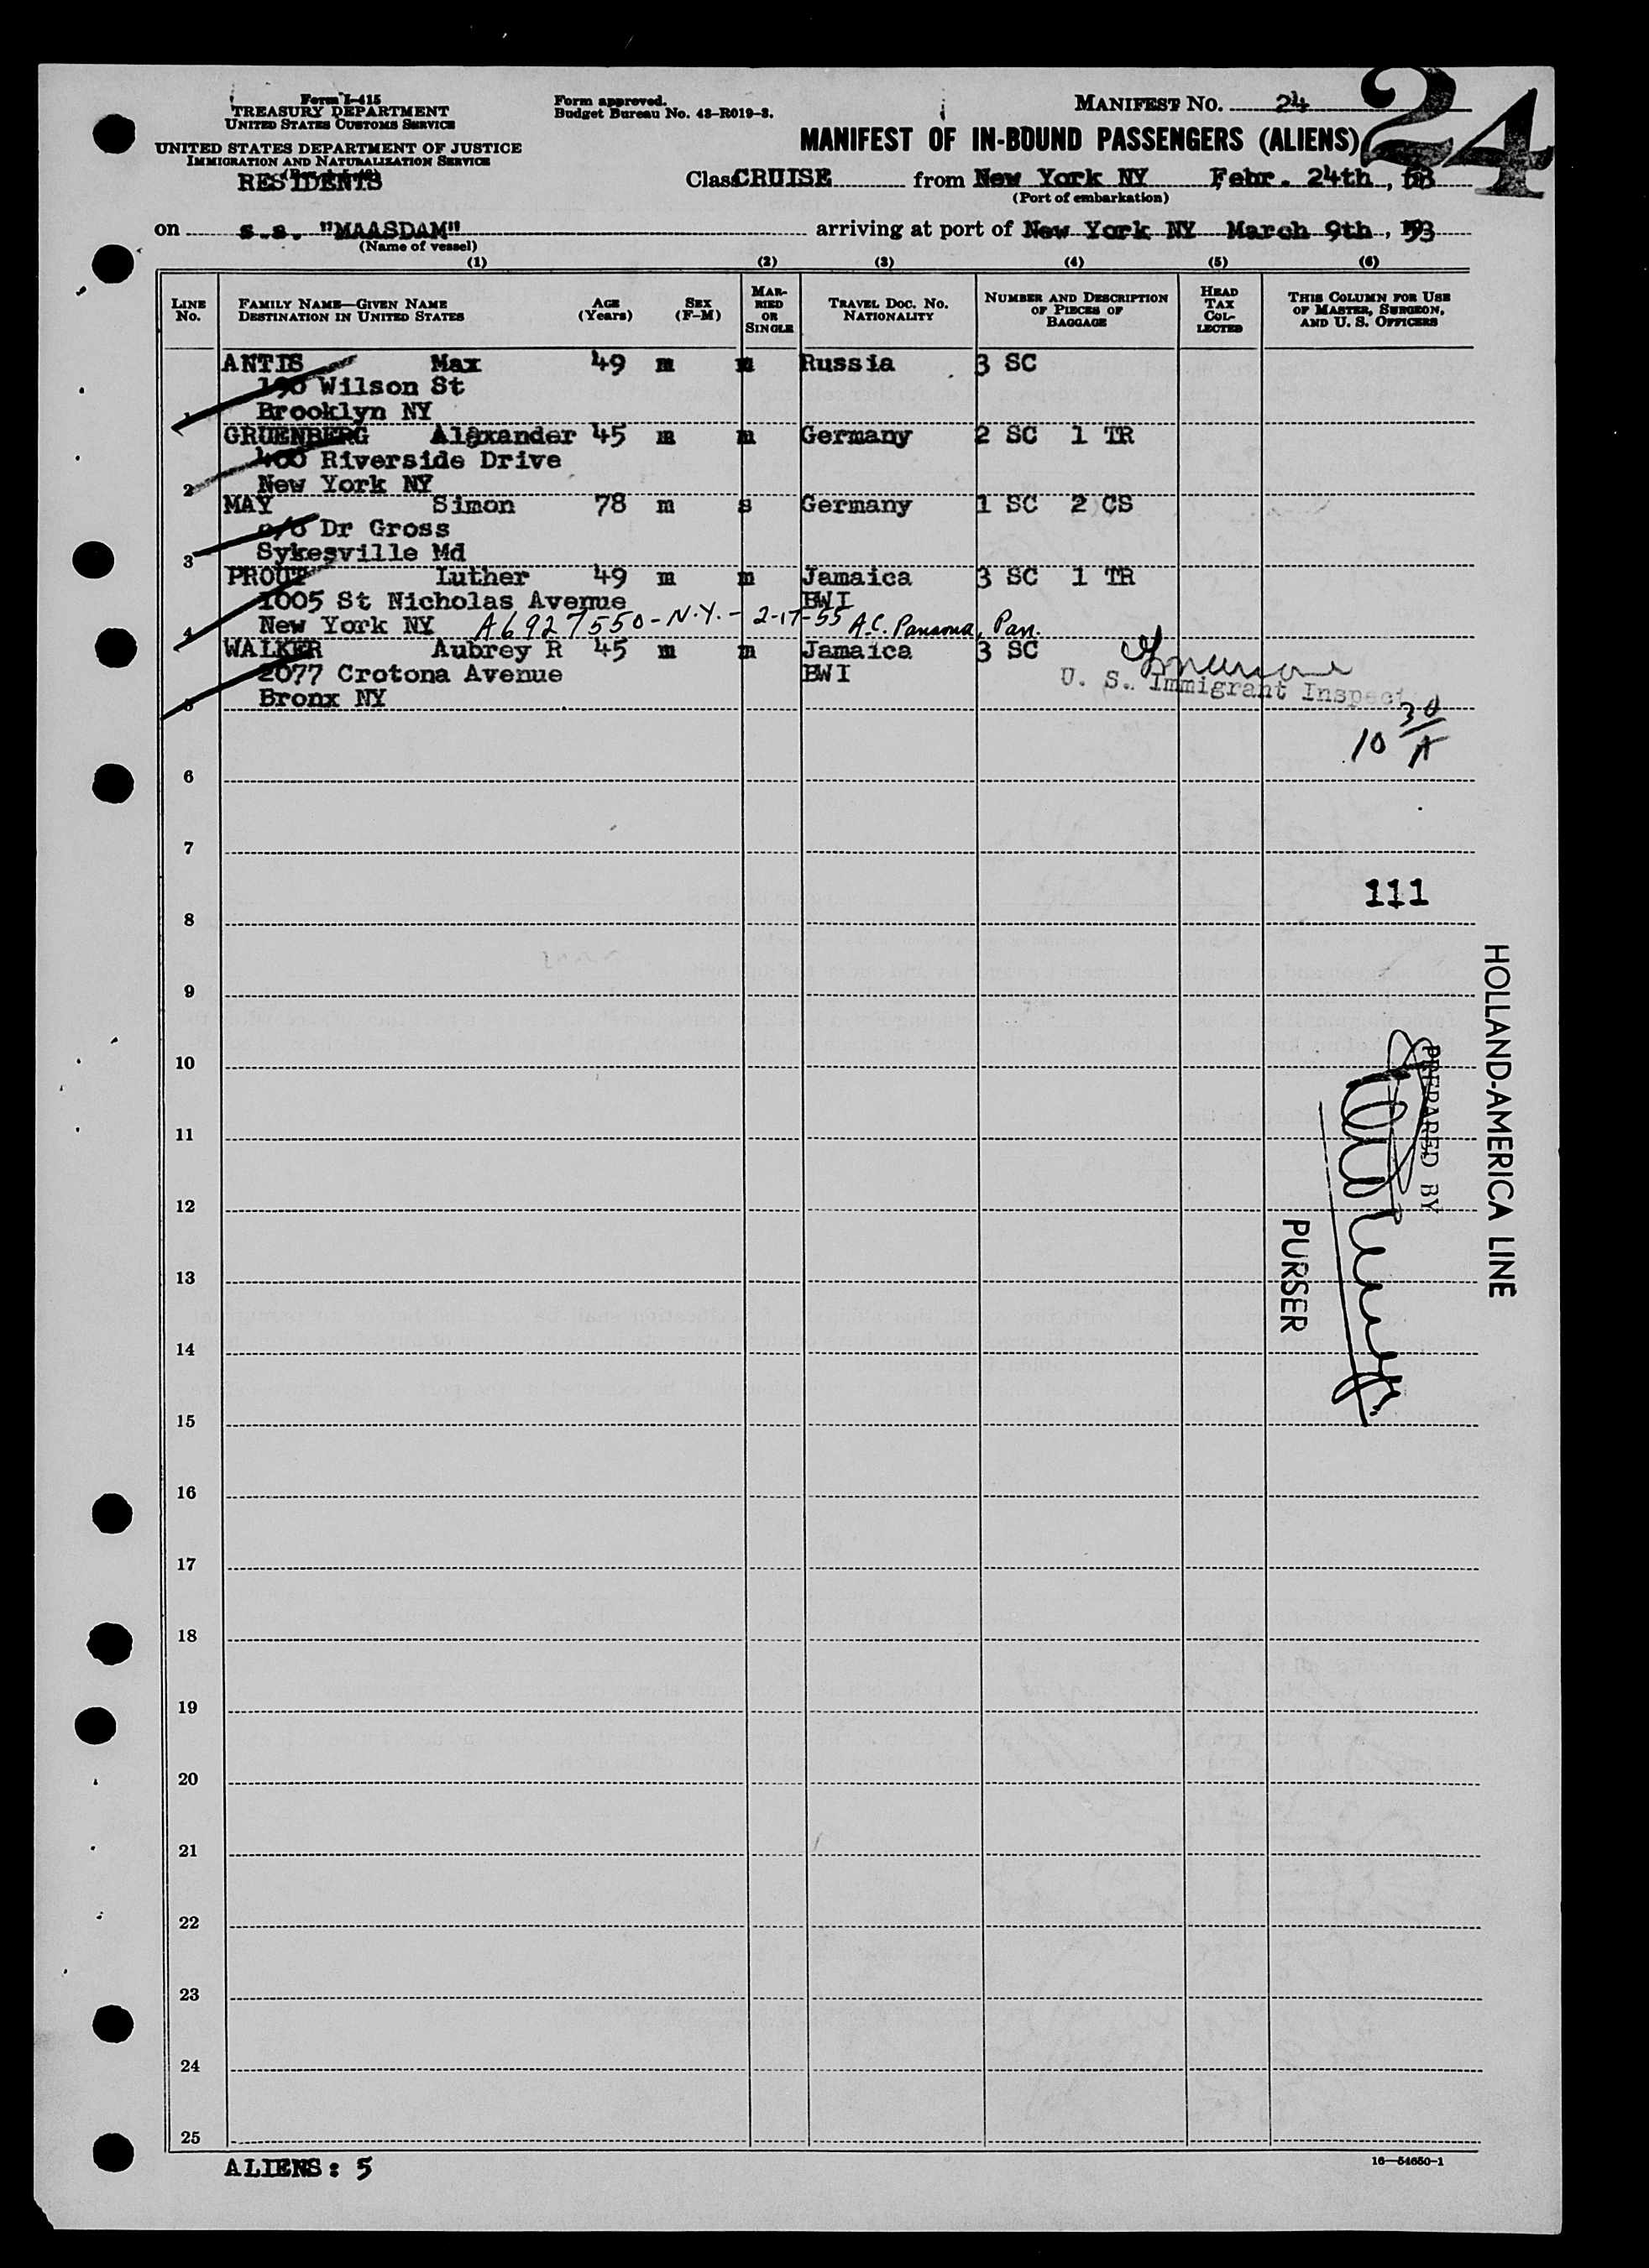 Form I-415
TREASURY DEPARTMENT
UNITED STATES CUSTOMS SERVICE
UNITED STATES DEPARTMENT OF JUSTICE
IMMIGRATION AND NATURALIZATION SERVICE
RESIDENTS
Form approved.
Budget Bureau No. 43-R019-3.
MANIFEST NO. 24
24
MANIFEST OF IN-BOUND PASSENGERS (ALIENS)
Class CRUISE from New York NY Febr. 24th, 53
(Port of embarkation)
on s.s. "MAASDAM" arriving at port of New York NY March 9th, 53
(Name of vessel)
(1) (2) (3) (4) (5) (6)
LINE No. FAMILY NAME—GIVEN NAME DESTINATION IN UNITED STATES AGE (Years) SEX (F-M) MARRIED OR SINGLE TRAVEL DOC. NO. NATIONALITY NUMBER AND DESCRIPTION OF PIECES OF BAGGAGE HEAD TAX COLLECTED THIS COLUMN FOR USE OF MASTER, SURGEON, AND U. S. OFFICERS
ANTIS Max 49 m m Russia 3 SC
190 Wilson St
1 Brooklyn NY
GRUENBERG Alexander 45 m m Germany 2 SC 1 TR
400 Riverside Drive
2 New York NY
MAY Simon 78 m s Germany 1 SC 2 CS
c/o Dr Gross
3 Sykesville Md
PROUT Luther 49 m m Jamaica 3 SC 1 TR
1005 St Nicholas Avenue BWI
4 New York NY A6927550-N.Y.-2-17-55 A.C. Panama, Pan.
WALKER Aubrey R 45 m m Jamaica 3 SC
2077 Crotona Avenue BWI U. S. Immigrant Inspec
5 Bronx NY
10 30/A
6
7
111
8
9
10
11
12
13
14
15
16
17
18
19
20
21
22
23
24
25
HOLLAND-AMERICA LINE
PREPARED BY
PURSER
ALIENS: 5
16—54650-1